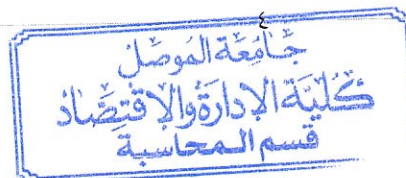 ٤
جامعة الموصل
كلية الإدارة والاقتصاد
قسم المحاسبة